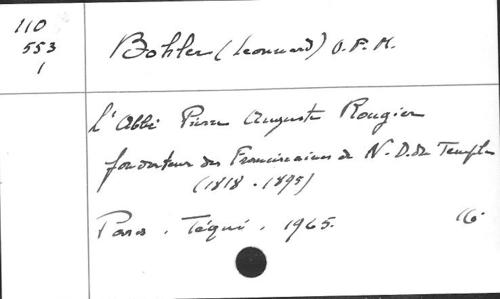 110
553
1
Bohler (Leonnard) O.F.M.
L'Abbé Pierre Auguste Rougier
fondateur des Franciscaines de N.D. du Temple
(1818-1895)
Paris. Téqui. 1965. 16°